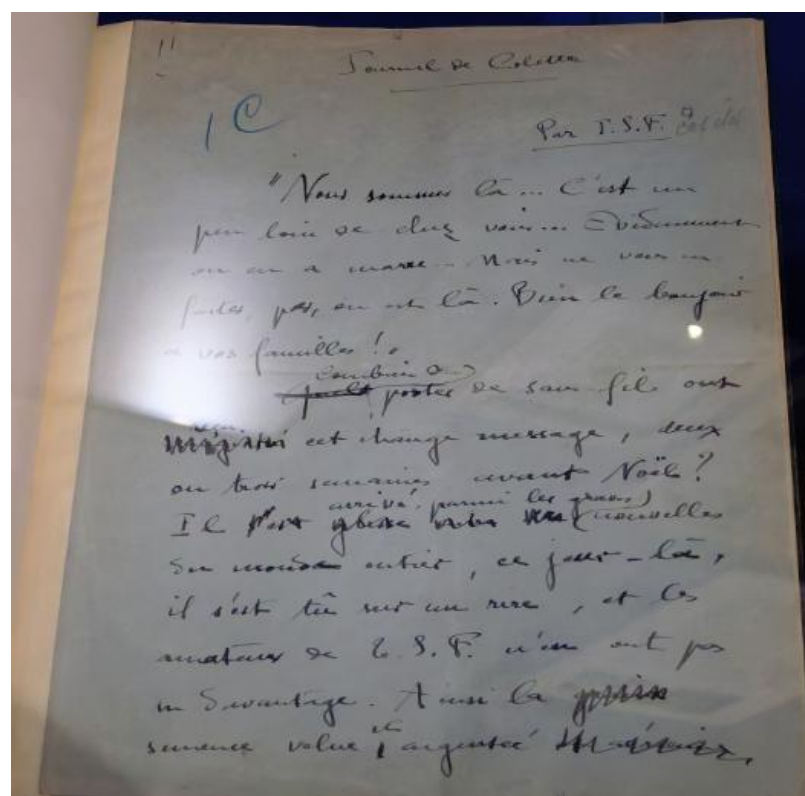 11
Journal de Colette
1C
Par T.S.F.
"Nous sommes là... C'est un
peu loin de chez vous... Évidemment
on en a marre... Mais ne vous en
faites, pas, on est là. Bien le bonjour
à vos familles !
Combien de
postes de sans fil ont
cet étrange message, deux
ou trois semaines avant Noël ?
arrivé, parmi les graves
Il nouvelles
du monde entier, ce jour-là,
il s'est tû sur un rire, et les
amateurs de T.S.F. n'en ont pas
su davantage. Ainsi la
semence velue, et argentée